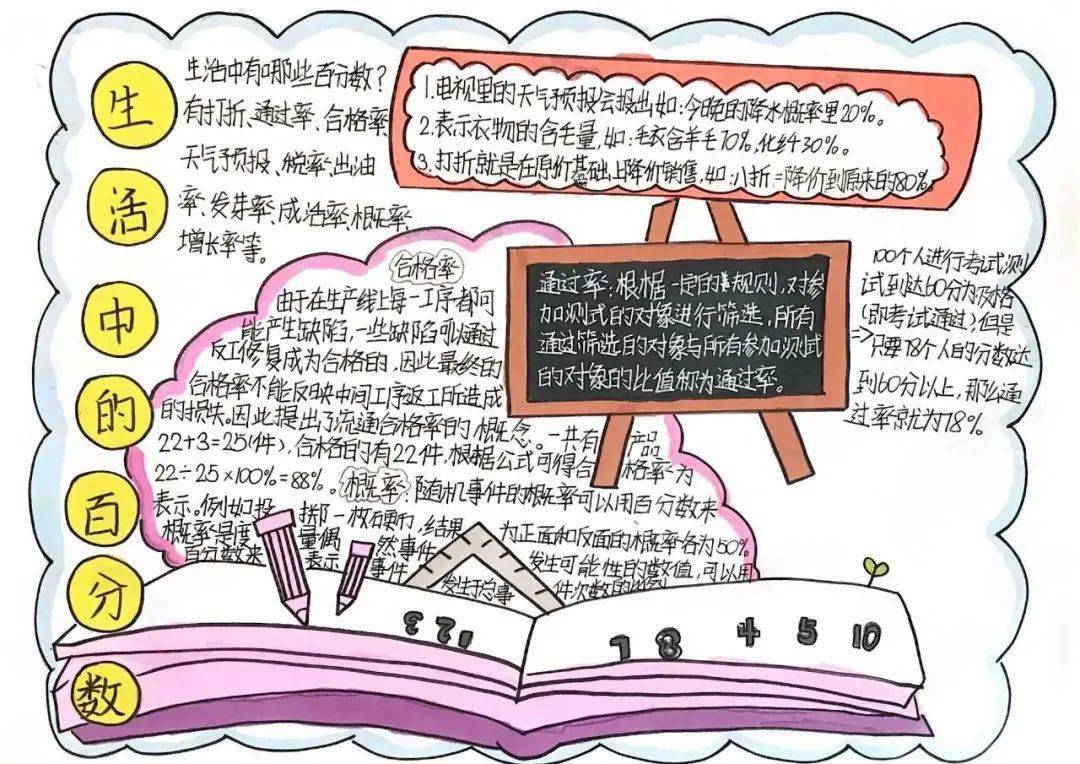 生活中的百分数
生活中有哪些百分数？
有打折、通过率、合格率
天气预报、税率、出油
率、发芽率、成活率、概率、
增长率等。
1.电视里的天气预报会报出如:今晚的降水概率里20%。
2.表示衣物的含毛量,如:毛衣含羊毛70%,化纤30%。
3.打折就是在原价基础上降价销售,如:八折=降价到原来的80%。
合格率
由于在生产线上每一工序都可
能产生缺陷,一些缺陷可以通过
反工修复成为合格的,因此最终的
合格率不能反映中间工序返工所造成
的损失。因此提出了流通合格率的概念。一共有 产品
22+3=25(件),合格的有22件,根据公式可得合 格率为
22÷25×100%=88%。概率:随机事件的概率可以用百分数来
表示。例如投 掷一枚硬币,结果 为正面和反面的概率各为50%
概率是度 量偶 然事件 发生可能性的数值,可以用
百分数来 表示 事件 发生于总事 件次数的
通过率:根据一定的规则,对参
加测式的对象进行筛选,所有
通过筛选的对象与所有参加测试
的对象的比值称为通过率。
100个人进行考试测
试到达60分为及格
(即考试通过),但是
=>只要78个人的分数达
到60分以上,那么通
过率就为78%。
1 2 3
7 8 4 5 10